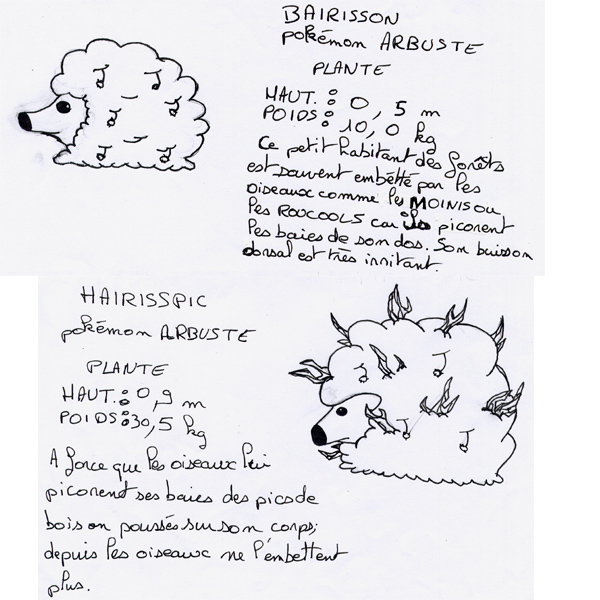 BAIRISSON
pokémon ARBUSTE
PLANTE
HAUT. : 0,5 m
POIDS : 10,0 kg
Ce petit habitant des forêts
est souvent embétté par les
oiseaux comme les MOINISOU
les ROUCOOLS car ils picorent
les baies de son dos. Son buisson
dorsal est très irritant.
HAIRISSPIC
pokémon ARBUSTE
PLANTE
HAUT. : 0,9 m
POIDS : 30,5 kg
A force que les oiseaux lui
picorent ses baies des pics de
bois on poussés sur son corps;
depuis les oiseaux ne l'embettent
plus.